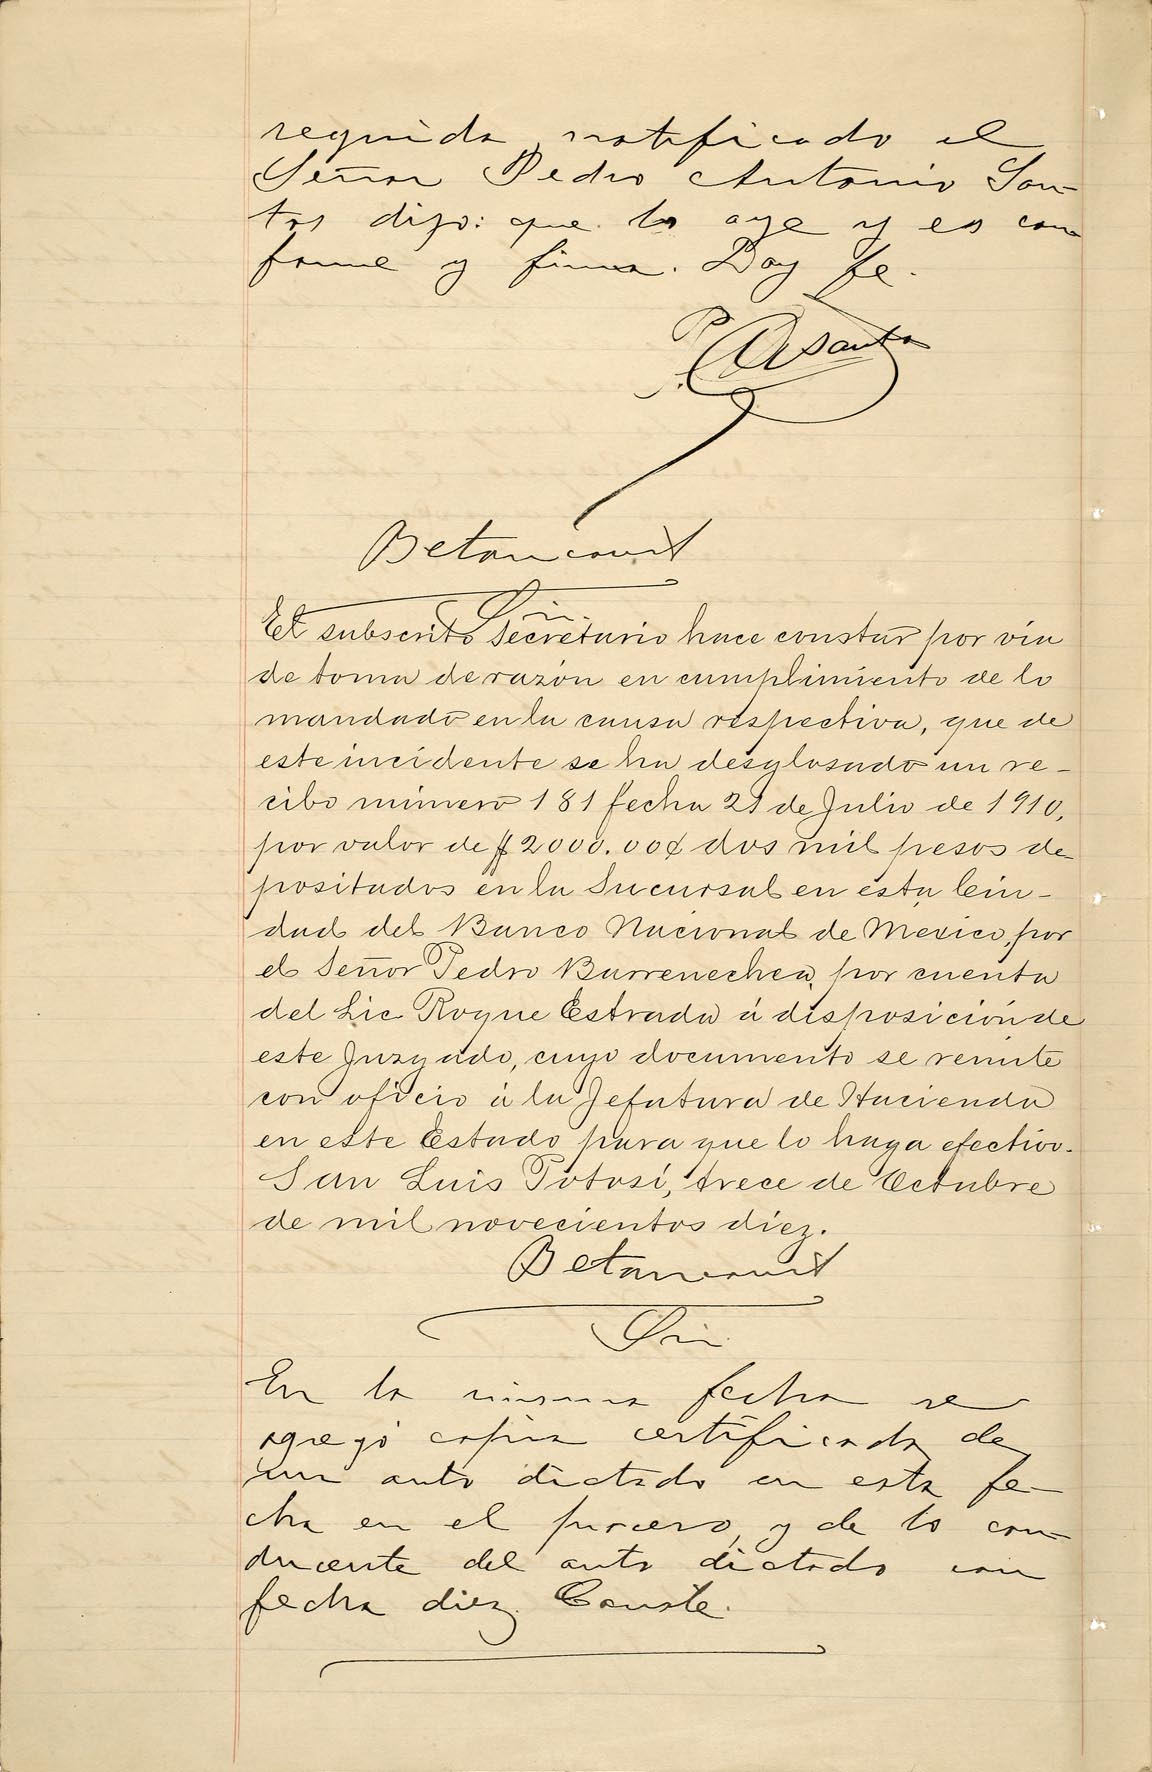 seguida, notificado el
Señor Pedro Antonio San-
tos dijo: que lo oye y es con
forme y firma. Doy fe.
P. A. Santos
Betancourt
Srio.
El subscrito Secretario hace constar por vía
de toma de razón en cumplimiento de lo
mandado en la causa respectiva, que de
este incidente se ha desglosado un re-
cibo número 181 fecha 21 de Julio de 1910,
por valor de $2000.00¢ dos mil pesos de-
positados en la Sucursal en esta Ciu-
dad del Banco Nacional de Mexico, por
el Señor Pedro Barrenechea, por cuenta
del Lic Roque Estrada á disposición de
este Juzgado, cuyo documento se remite
con oficio á la Jefatura de Hacienda
en este Estado para que lo haga efectivo.
San Luis Potosí, trece de Octubre
de mil novecientos diez.
Betancourt
Srio.
En la misma fecha se
agregó copia certificada de
un auto dictado en esta fe-
cha en el proceso, y de lo con-
ducente del auto dictado con
fecha diez. Conste.